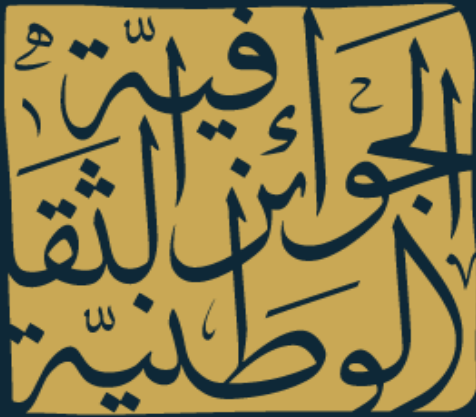 الجوائز
الثقافيّة
الوطنيّة